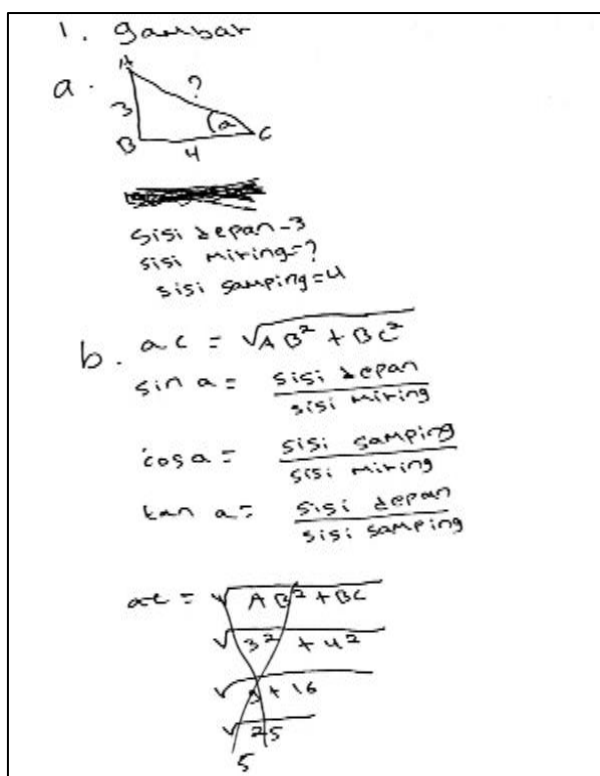 1. gambar
a.
A
?
3
a
B
C
4
sisi depan - 3
sisi miring = ?
sisi samping = 4
b. ac = √AB² + BC²
sin a = sisi depan
sisi miring
cos a = sisi samping
sisi miring
tan a = sisi depan
sisi samping
ac = √AB² + BC
√3² + 4²
√9 + 16
√25
5